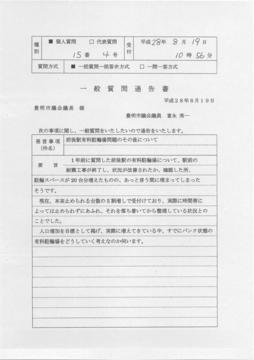 種別 ■ 個人質問 □ 代表質問 受付 平成28年8月19日
15番 4号 10時56分
質問方式 ■ 一括質問一括答弁方式 □ 一問一答方式
一般質問通告書
平成28年8月19日
豊明市議会議長 様
豊明市議会議員 富永 秀一
次の事項に関し、一般質問をいたしたいので通告をいたします。
発言事項(件名) 前後駅有料駐輪場問題のその後について
要旨 1年前に質問した前後駅の有料駐輪場について、駅前の
耐震工事が終了し、状況が改善されたか、確認した所、
駐輪スペースが20台分増えたものの、あっと言う間に埋まってしまった
そうです。
現在、本来止められる台数の5割増しで受付けており、実際に時間帯に
よっては止められずにあふれ、それを落ち着いてから整理している状況との
ことでした。
人口増加を目標として掲げ、実際に増えてきている中、すでにパンク状態の
有料駐輪場をどうしていく考えなのか伺います。